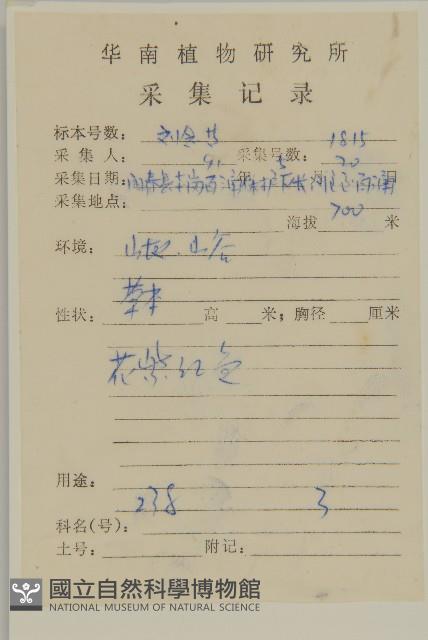 华南植物研究所
采集记录
标本号数:
刘念 1815
采集人: 采集号数:
91 5 20
采集日期: 年 月 日
采集地点:
700
海拔 米
环境: 山坡、山谷
草本
性状: 高 米; 胸径 厘米
花紫红色
用途:
238 3
科名(号):
土号: 附记:
國立自然科學博物館
NATIONAL MUSEUM OF NATURAL SCIENCE